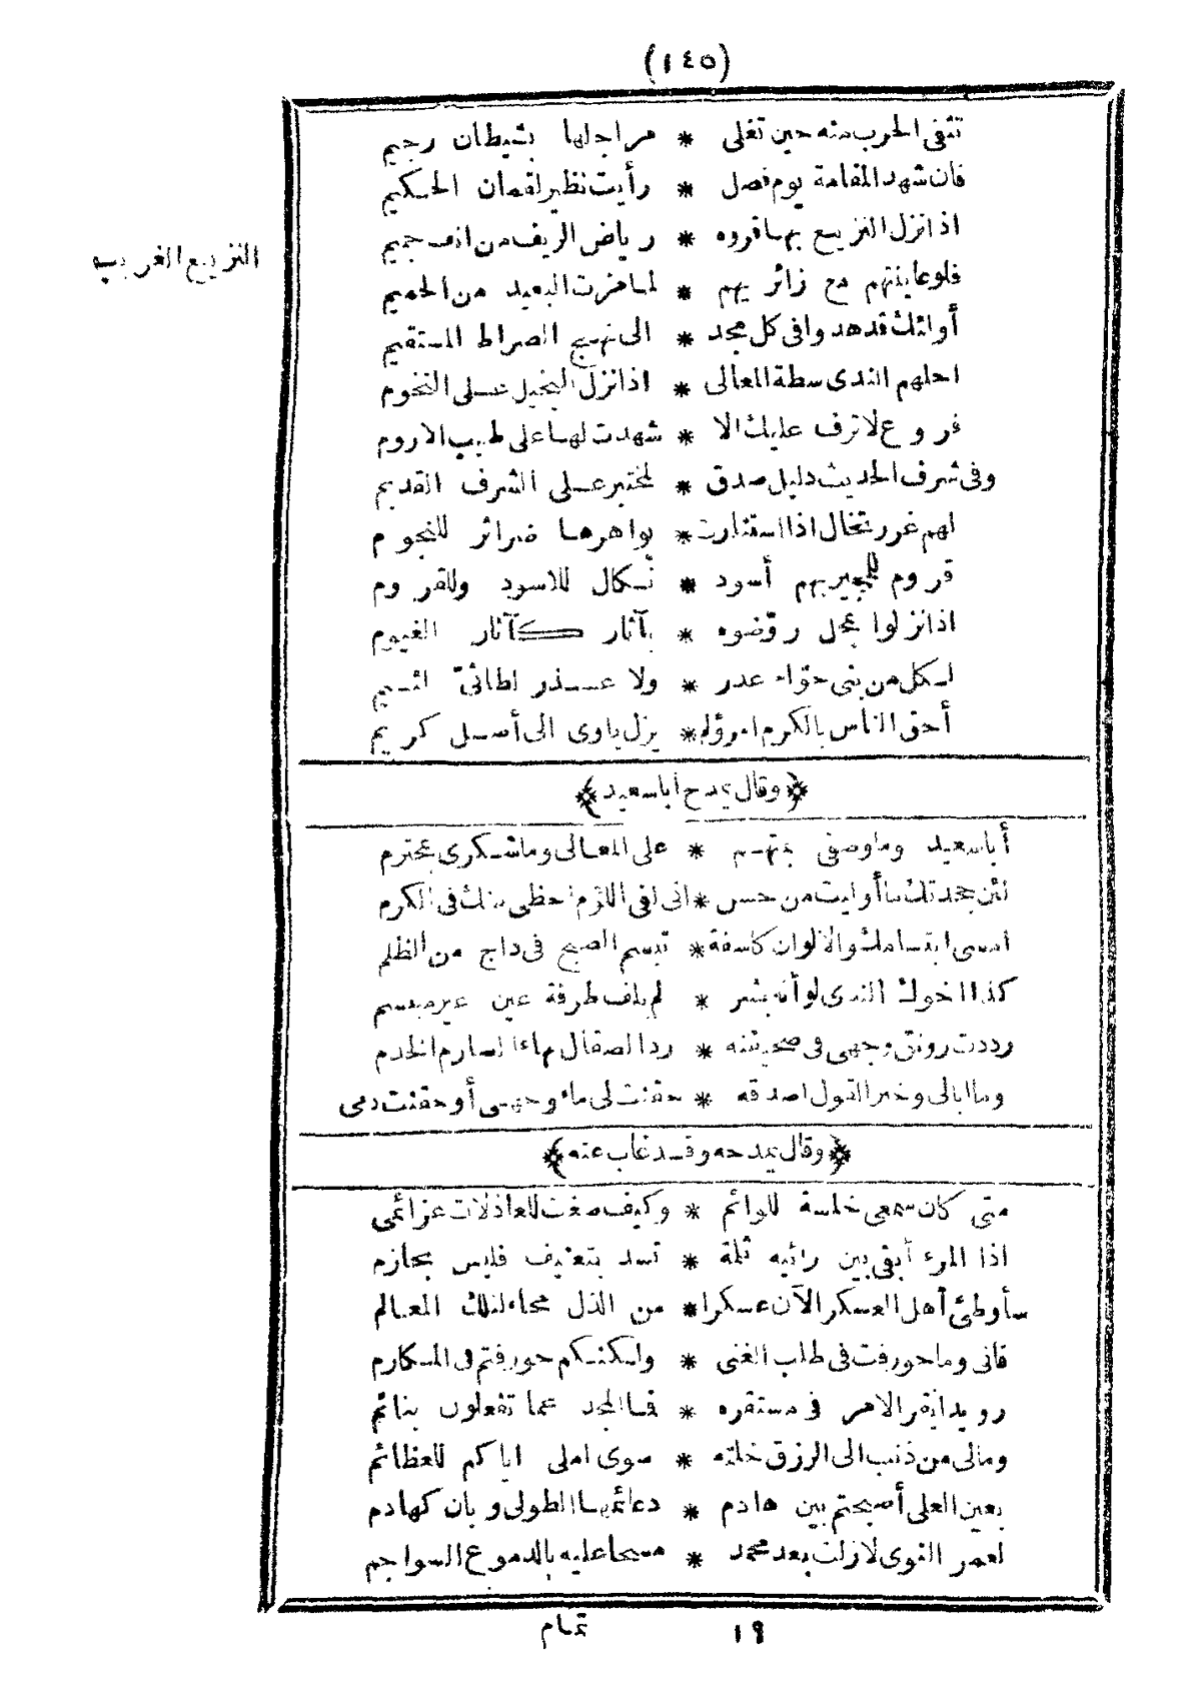 (١٤٥)
تثفى الحرب منه حين تغلى * مراجلها بشيطان رجيم
فان شهد المقامة يوم فصل * رأيت نظير لقمان الحكيم
اذا نزل النزيع بهم اقروه * رياض الريف من انف جميم
النزيع الغريب
فلو عاينتهم مع زائريهم * لما مزت البعيد من الحميم
أولئك قد هدوا فى كل مجد * الى نهج الصراط المستقيم
احلهم الندى سطة المعالى * اذا نزل البخيل على التخوم
فروع لا ترف عليك الا * شهدت لها على طيب الاروم
وفى شرف الحديث دليل صدق * لمختبر على الشرف القديم
لهم غرر تخال اذا استنارت * بواهرها ضرائر للنجوم
قروم للمجير بهم أسود * نكال للاسود وللقروم
اذا نزلوا بمحل روّضوه * بآثار كآثار الغيوم
لكل من بنى حوّاء عذر * ولا عذر لطائىّ لئيم
أحق الناس بالكرم امرؤ لم * يزل يأوى الى أصل كريم
﴿وقال يمدح أبا سعيد﴾
أبا سعيد وما وصفى بمتهم * على المعالى وما شكرى بمخترم
لئن جحدتك ما أوليت من حسن * انى لفى اللؤم احظى منك فى الكرم
امسى ابتسامك والالوان كاسفة * تبسم الصبح فى داج من الظلم
كذا اخوك الندى لو أنه بشر * لم يلف طرفة عين غير مبتسم
رددت رونق وجهى فى صحيفته * رد الصقال بهاء الصارم الخذم
وما ابالى وخير القول اصدقه * حقنت لى ماء وجهى أو حقنت دمى
﴿وقال يمدحه وقد غاب عنه﴾
متى كان سمعى خلسة للوائم * وكيف صغت للعاذلات عزائمى
اذا المرء أبقى بين رائيه ثلمة * تسد بتعنيف فليس بحازم
سأوطئ أهل العسكر الآن عسكرا * من الذل محاء لتلك المعالم
فانى وما حورفت فى طلب الغنى * ولكنكم حورفتم فى المكارم
رويدا يقر الامر فى مستقره * فما المجد عما تفعلون بنائم
ومالى من ذنب الى الرزق خلته * سوى املى اياكم للعظائم
بعين العلى أصبحتم بين هادم * دعائمها الطولى وبان كهادم
لعمر النوى لا زلت بعد محمد * مسحا عليه بالدموع السواجم
١٩ تمام